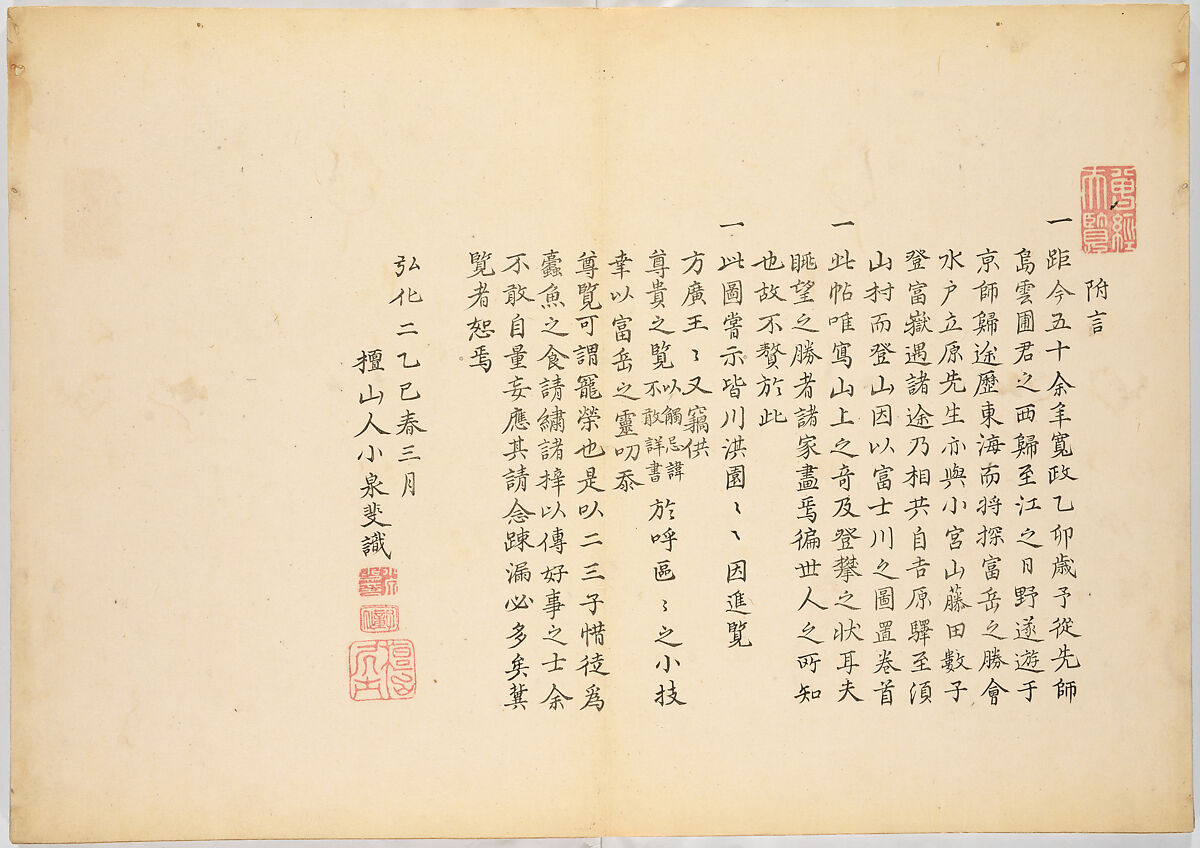 附言
一距今五十余年寬政乙卯歲予從先師
島雲圃君之西歸至江之日野遂遊于
京師歸途歷東海而將探富岳之勝會
水戶立原先生亦與小宮山藤田數子
登富嶽遇諸途乃相共自吉原驛至須
山村而登山因以富士川之圖置卷首
一此帖唯寫山上之奇及登攀之狀耳夫
眺望之勝者諸家畫焉徧世人之所知
也故不贅於此
一此圖嘗示皆川洪園〻〻因進覽
方廣王〻又竊供
尊貴之覽以觸忌諱不敢詳書於呼區〻之小技
幸以富岳之靈叨忝
尊覽可謂寵榮也是以二三子惜徒為
蠹魚之食請繡諸梓以傳好事之士余
不敢自量妄應其請念踈漏必多矣冀
覽者恕焉
弘化二乙巳春三月
檀山人小泉斐識